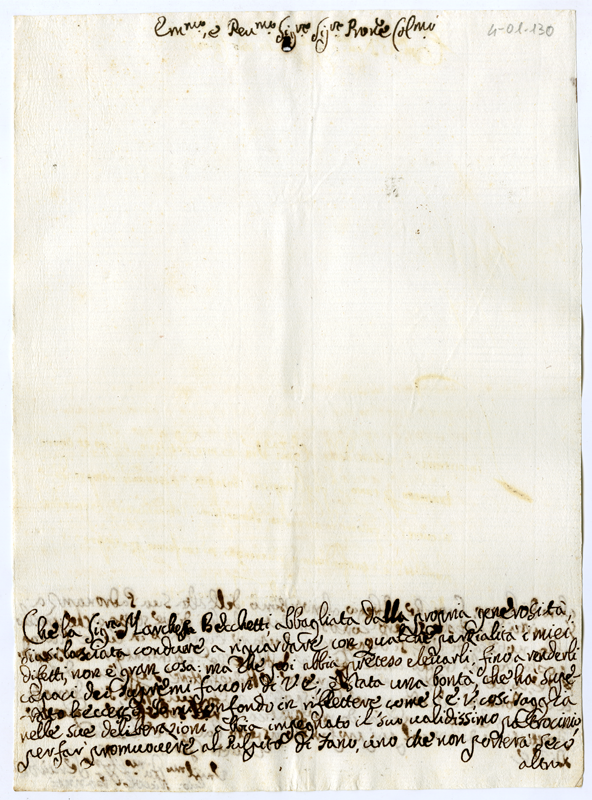 Em.mo, e Reu.mo Sig.re Sig.re Prone Colmo
4-01-130
Che la Sig.ra Marchesa Becchetti abbagliata dalla propria generosità,
siasi lasciata condurre a riguardare con qualche parzialità i miei
difetti, non è gran cosa: ma che poi abbia preteso elevarli, fino a renderli
capaci dei supremi favori di V. E., è stata una bontà che ha supe-
rato confondo in riflettere come l'E. V. così saggia
nelle sue deliberazioni abbia impegnato il suo validissimo patrocinio,
per far promuovere al Pulpito di Fano, uno che non porterà seco
altro